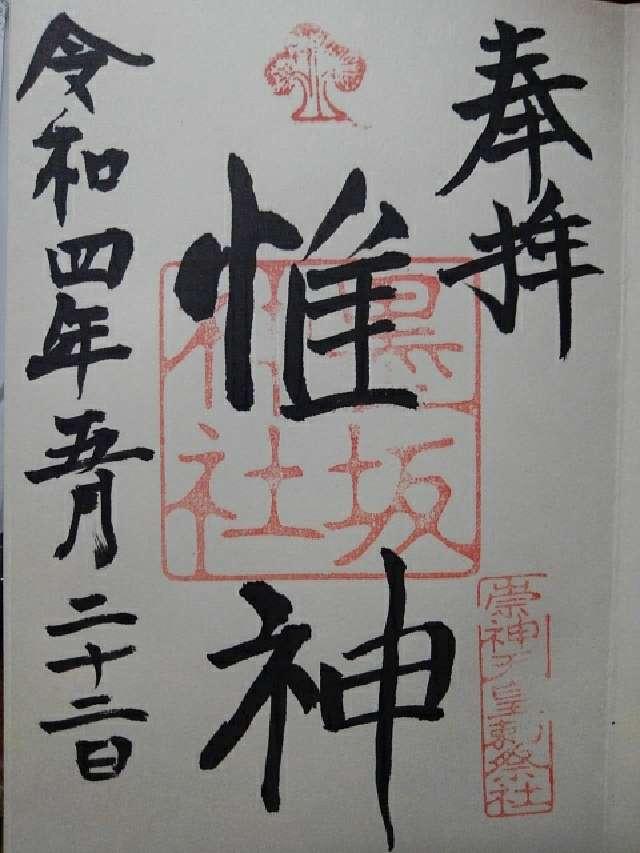 奉拝
墨坂
神社
惟神
崇神天皇勅祭社
令和四年五月二十二日